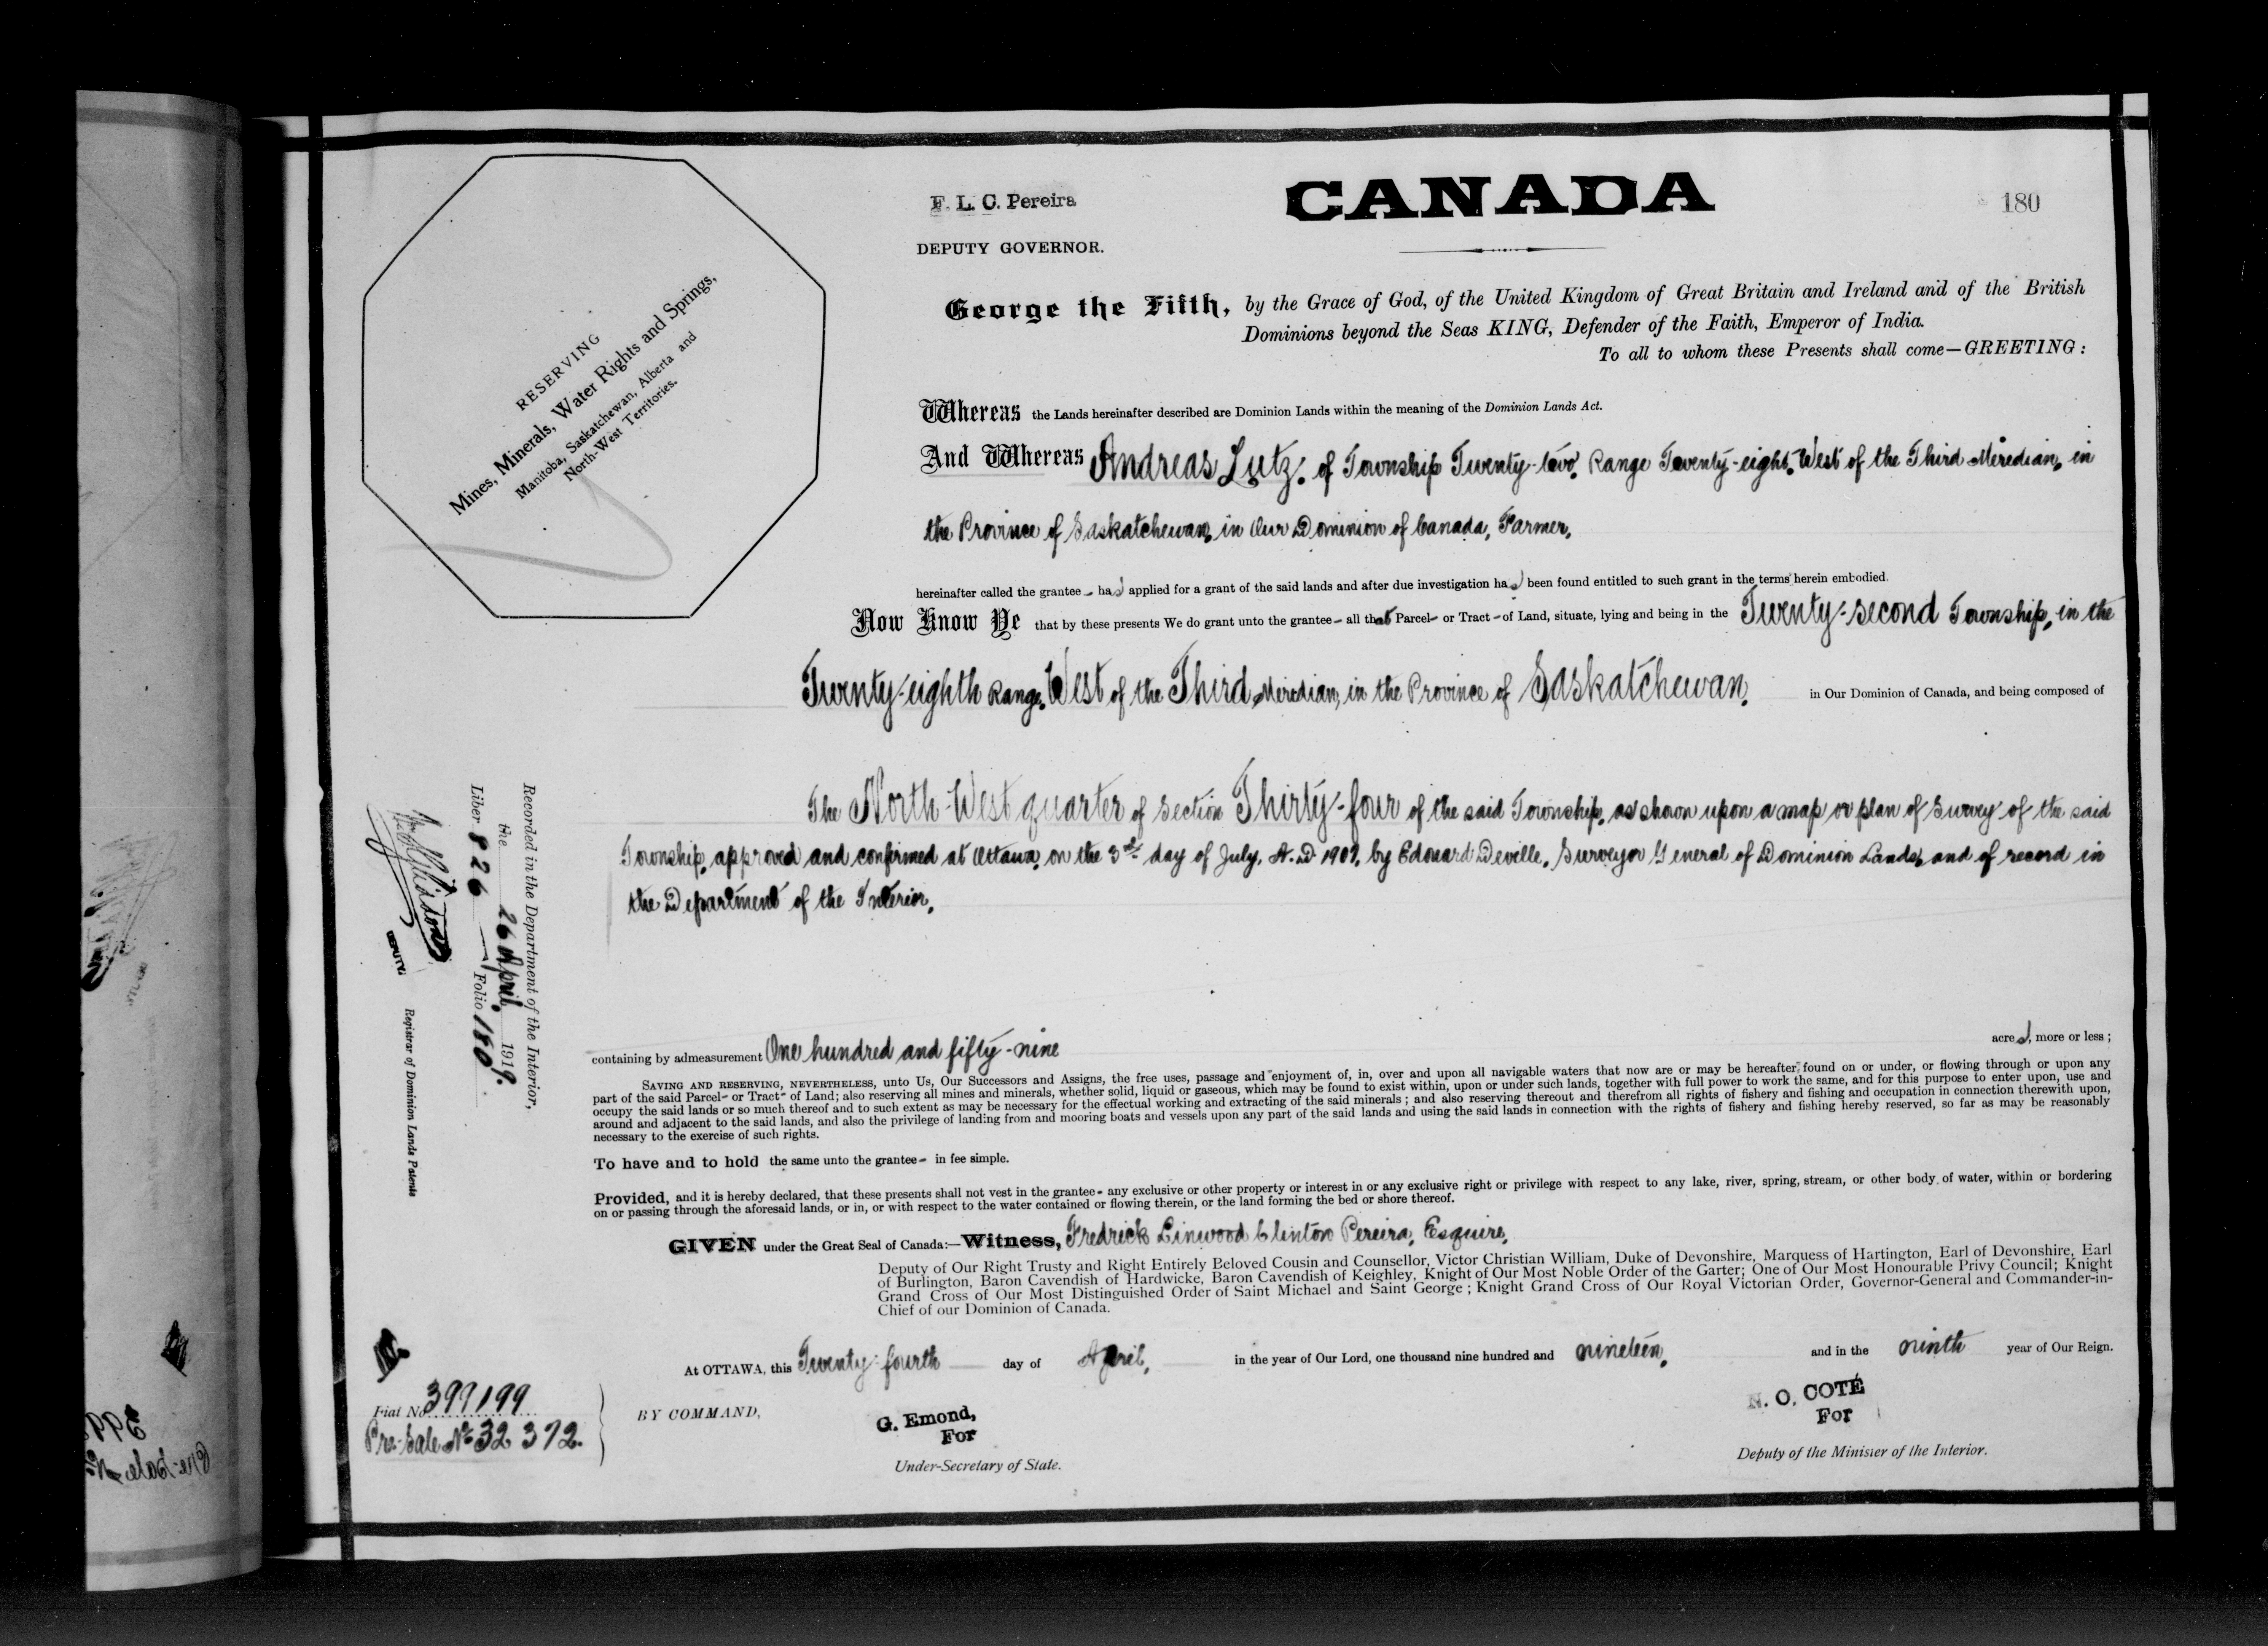 F. L. C. Pereira
CANADA
180
DEPUTY GOVERNOR.
George the Fifth, by the Grace of God, of the United Kingdom of Great Britain and Ireland and of the British
Dominions beyond the Seas KING, Defender of the Faith, Emperor of India.
To all to whom these Presents shall come—GREETING:
RESERVING
Mines, Minerals, Water Rights and Springs,
Manitoba, Saskatchewan, Alberta and
North-West Territories.
Whereas the Lands hereinafter described are Dominion Lands within the meaning of the Dominion Lands Act.
And Whereas Andreas Lutz, of Township Twenty-two, Range Twenty-eight, West of the Third Meridian, in
the Province of Saskatchewan, in Our Dominion of Canada, Farmer,
hereinafter called the grantee - has applied for a grant of the said lands and after due investigation has been found entitled to such grant in the terms herein embodied.
Now Know Ye that by these presents We do grant unto the grantee - all that Parcel - or Tract - of Land, situate, lying and being in the Twenty-second Township, in the
Twenty-eighth Range, West of the Third Meridian, in the Province of Saskatchewan, in Our Dominion of Canada, and being composed of
The North-West quarter of Section Thirty-four of the said Township, as shown upon a map or plan of Survey of the said
Township, approved and confirmed at Ottawa, on the 3rd day of July, A.D. 1909, by Edouard Deville, Surveyor General of Dominion Lands, and of record in
the Department of the Interior.
containing by admeasurement One hundred and fifty-nine acres, more or less;
SAVING AND RESERVING, NEVERTHELESS, unto Us, Our Successors and Assigns, the free uses, passage and enjoyment of, in, over and upon all navigable waters that now are or may be hereafter found on or under, or flowing through or upon any
part of the said Parcel - or Tract - of Land; also reserving all mines and minerals, whether solid, liquid or gaseous, which may be found to exist within, upon or under such lands, together with full power to work the same, and for this purpose to enter upon, use and
occupy the said lands or so much thereof and to such extent as may be necessary for the effectual working and extracting of the said minerals; and also reserving thereout and therefrom all rights of fishery and fishing and occupation in connection therewith upon,
around and adjacent to the said lands, and also the privilege of landing from and mooring boats and vessels upon any part of the said lands and using the said lands in connection with the rights of fishery and fishing hereby reserved, so far as may be reasonably
necessary to the exercise of such rights.
To have and to hold the same unto the grantee - in fee simple.
Provided, and it is hereby declared, that these presents shall not vest in the grantee - any exclusive or other property or interest in or any exclusive right or privilege with respect to any lake, river, spring, stream, or other body of water, within or bordering
on or passing through the aforesaid lands, or in, or with respect to the water contained or flowing therein, or the land forming the bed or shore thereof.
GIVEN under the Great Seal of Canada:—Witness, Fredrick Linwood Clinton Pereira, Esquire,
Deputy of Our Right Trusty and Right Entirely Beloved Cousin and Counsellor, Victor Christian William, Duke of Devonshire, Marquess of Hartington, Earl of Devonshire, Earl
of Burlington, Baron Cavendish of Hardwicke, Baron Cavendish of Keighley, Knight of Our Most Noble Order of the Garter; One of Our Most Honourable Privy Council; Knight
Grand Cross of Our Most Distinguished Order of Saint Michael and Saint George; Knight Grand Cross of Our Royal Victorian Order, Governor-General and Commander-in-
Chief of our Dominion of Canada.
At OTTAWA, this Twenty-fourth day of April, in the year of Our Lord, one thousand nine hundred and nineteen, and in the ninth year of Our Reign.
BY COMMAND,
G. Emond,
For
Under-Secretary of State.
N. O. COTÉ
For
Deputy of the Minister of the Interior.
Recorded in the Department of the Interior,
the 26 April, 1919.
Liber 826 Folio 180
DEPUTY
Registrar of Dominion Lands Patents
Fiat No. 399199
Pre-Sale No. 32372.